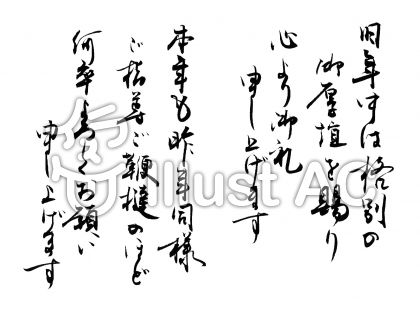 旧年中は格別の
御厚誼を賜り
心より御礼
申し上げます
本年も昨年同様
ご指導ご鞭撻のほど
何卒よろしくお願い
申し上げます
illust AC